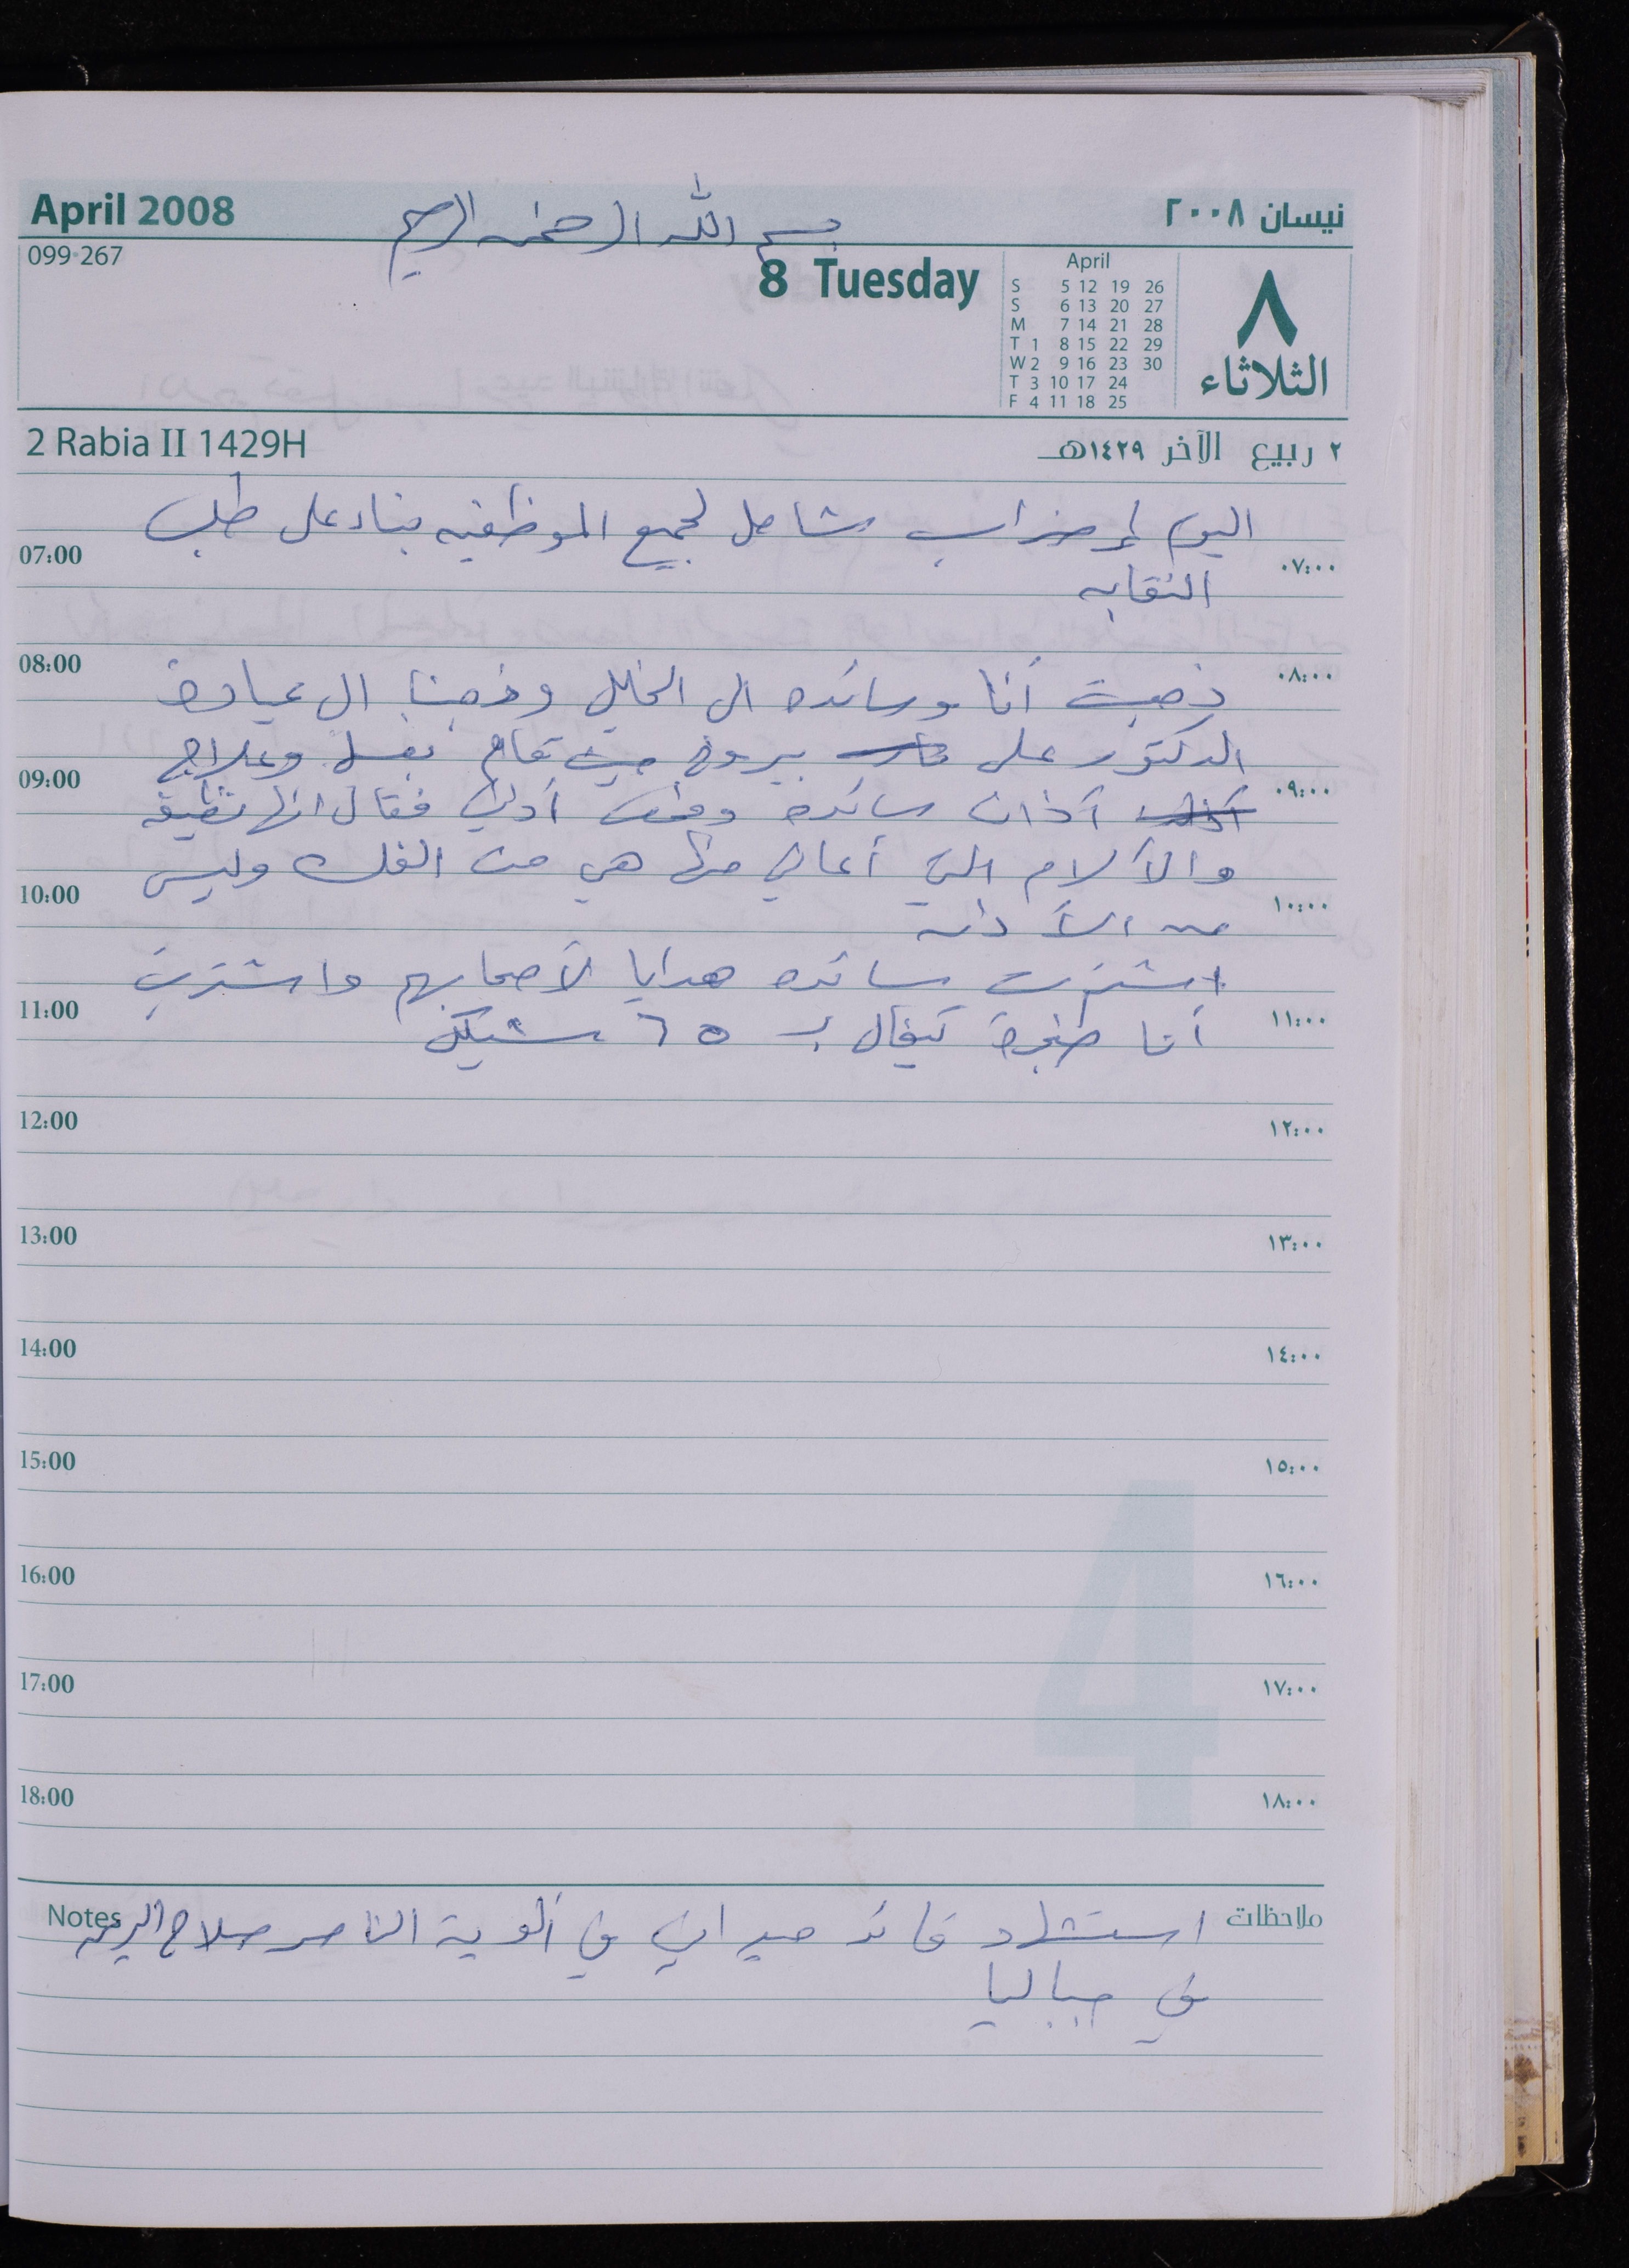 بسم الله الرحمن الرحيم
April 2008
نيسان ٢٠٠٨
099-267
8 Tuesday
April
S 5 12 19 26
S 6 13 20 27
M 7 14 21 28
T 1 8 15 22 29
W 2 9 16 23 30
T 3 10 17 24
F 4 11 18 25
٨
الثلاثاء
2 Rabia II 1429H
٢ ربيع الآخر ١٤٢٩هـ
اليوم إضراب شامل لجميع الموظفين بناء على طلب
07:00 ٠٧:٠٠
النقابه
08:00 ٠٨:٠٠
ذهبت أنا وسائده الى الخليل وذهبنا الى عيادة
الدكتور علي بيوض حيث قام بغسل وعلاج
09:00 ٠٩:٠٠
آذان سائده وفحص أذني فقال انها نظيفة
والآلام التي أعاني منها هي من الفك وليس
10:00 ١٠:٠٠
من الأذن
اشترت سائده هدايا لأصحابهم واشتريت
11:00 ١١:٠٠
أنا طنجرة تيفال بـ ٦٥ شيكل
12:00 ١٢:٠٠
13:00 ١٣:٠٠
14:00 ١٤:٠٠
15:00 ١٥:٠٠
4
16:00 ١٦:٠٠
17:00 ١٧:٠٠
18:00 ١٨:٠٠
Notes ملاحظات
استشهاد قائد ميداني في ألوية الناصر صلاح الدين
في جباليا